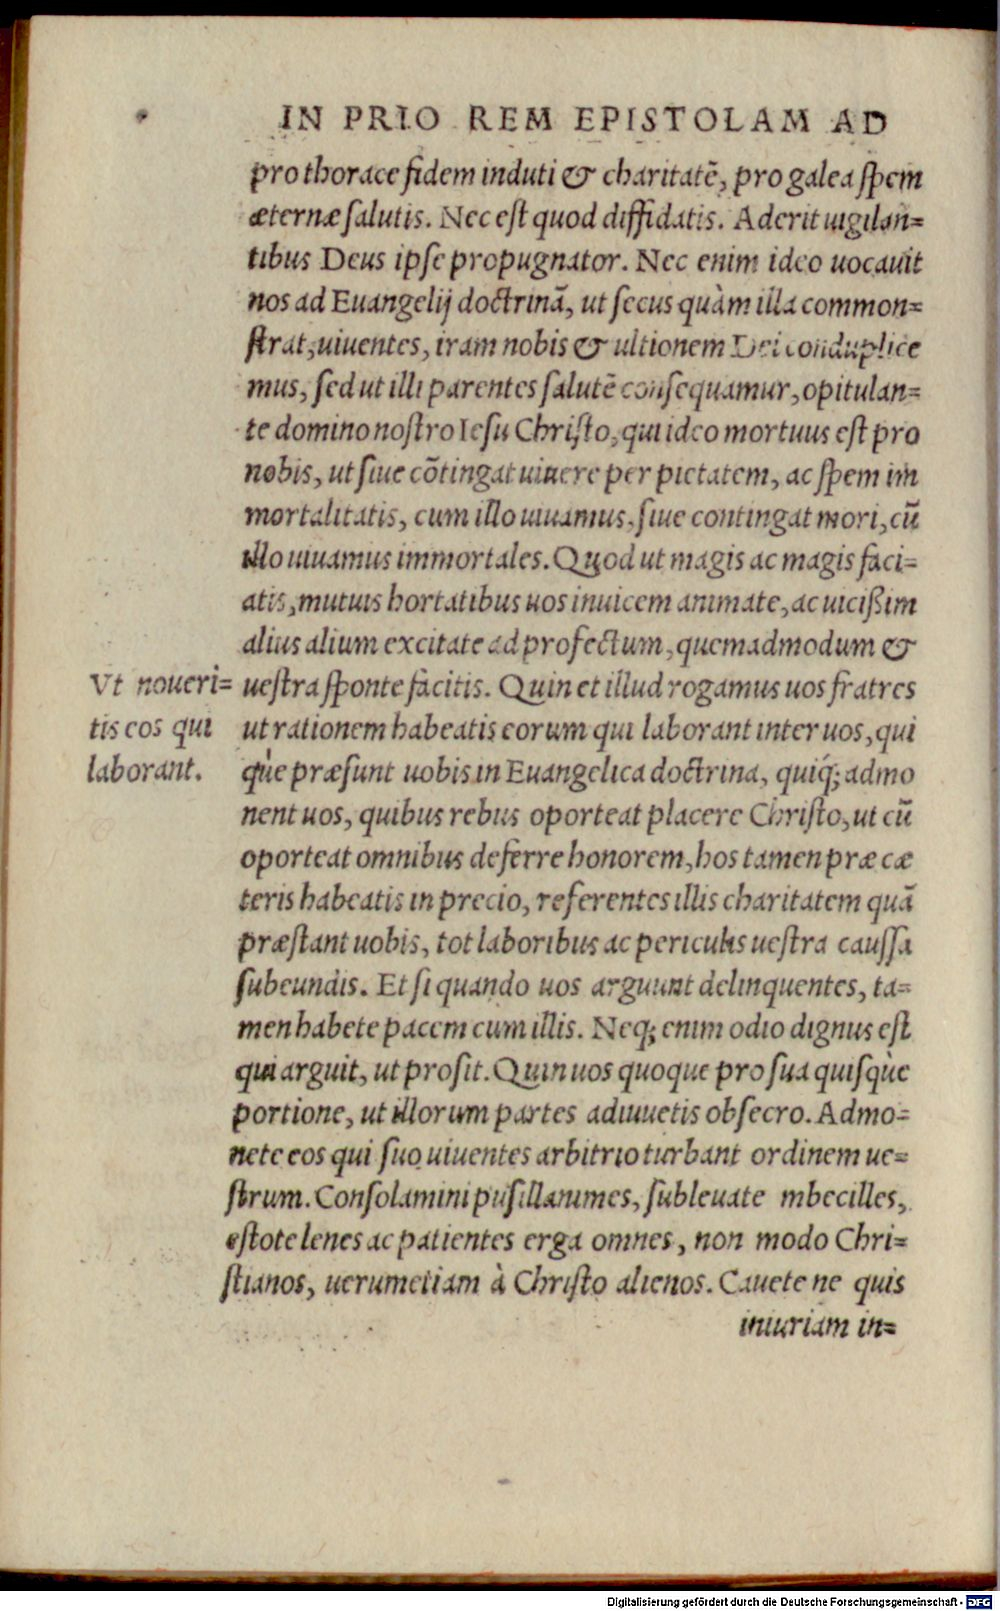 IN PRIO REM EPISTOLAM AD
pro thorace fidem induti & charitatē, pro galea spem
æternæ salutis. Nec est quod diffidatis. Aderit uigilan=
tibus Deus ipse propugnator. Nec enim ideo uocauit
nos ad Euangelij doctrinā, ut secus quàm illa common=
strat, uiuentes, iram nobis & ultionem Dei conduplice
mus, sed ut illi parentes salutē consequamur, opitulan=
te domino nostro Iesu Christo, qui ideo mortuus est pro
nobis, ut siue cōtingat uiuere per pietatem, ac spem im
mortalitatis, cum illo uiuamus, siue contingat mori, cū
illo uiuamus immortales. Quod ut magis ac magis faci=
atis, mutuis hortatibus uos inuicem animate, ac uicißim
alius alium excitate ad profectum, quemadmodum &
Vt noueri=
tis eos qui
laborant.
uestra sponte facitis. Quin et illud rogamus uos fratres
ut rationem habeatis eorum qui laborant inter uos, qui
q̀ue præsunt uobis in Euangelica doctrina, quiq́; admo
nent uos, quibus rebus oporteat placere Christo, ut cū
oporteat omnibus deferre honorem, hos tamen præ cæ
teris habeatis in precio, referentes illis charitatem quā
præstant uobis, tot laboribus ac periculis uestra caussa
subeundis. Et si quando uos arguunt delinquentes, ta=
men habete pacem cum illis. Neq; enim odio dignus est
qui arguit, ut prosit. Quin uos quoque pro sua quisq̀ue
portione, ut illorum partes adiuuetis obsecro. Admo=
nete eos qui suo uiuentes arbitrio turbant ordinem ue=
strum. Consolamini pusillanimes, subleuate mbecilles,
estote lenes ac patientes erga omnes, non modo Chri=
stianos, uerumetiam à Christo alienos. Cauete ne quis
iniuriam in=
Digitalisierung gefördert durch die Deutsche Forschungsgemeinschaft - DFG